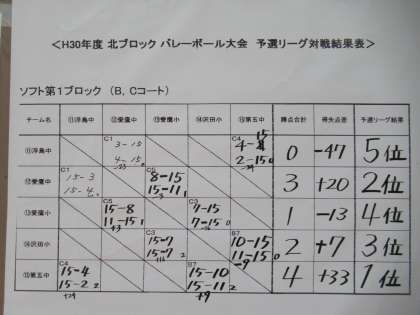 <H30年度 北ブロック バレーボール大会 予選リーグ対戦結果表>
ソフト第1ブロック (B, Cコート)
チーム名 ⑪浮島中 ⑫愛鷹中 ⑬愛鷹小 ⑭沢田小 ⑮第五中 勝点合計 得失点差 予選リーグ結果
⑪浮島中 C1 3-15 4-15 0 C4 4-15 2-15 0 0 -47 5位
⑫愛鷹中 C1 15-3 15-4 8-15 15-11 1 3 +20 2位
⑬愛鷹小 15-8 11-15 1 C3 7-15 7-15 0 1 -13 4位
⑭沢田小 C3 15-7 15-7 2 B7 10-15 11-15 0 -9 2 +7 3位
⑮第五中 C4 15-4 15-2 2 +24 B7 15-10 15-11 2 +9 4 +33 1位